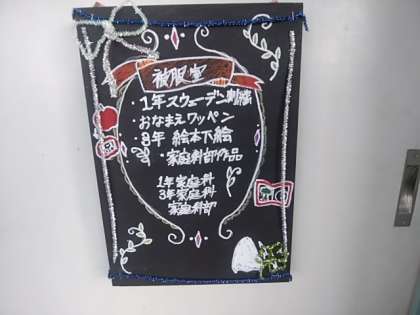 被服室
・1年スウェーデン刺繍
・おなまえワッペン
・3年 絵本下絵
・家庭科部作品
1年家庭科
3年家庭科
家庭科部